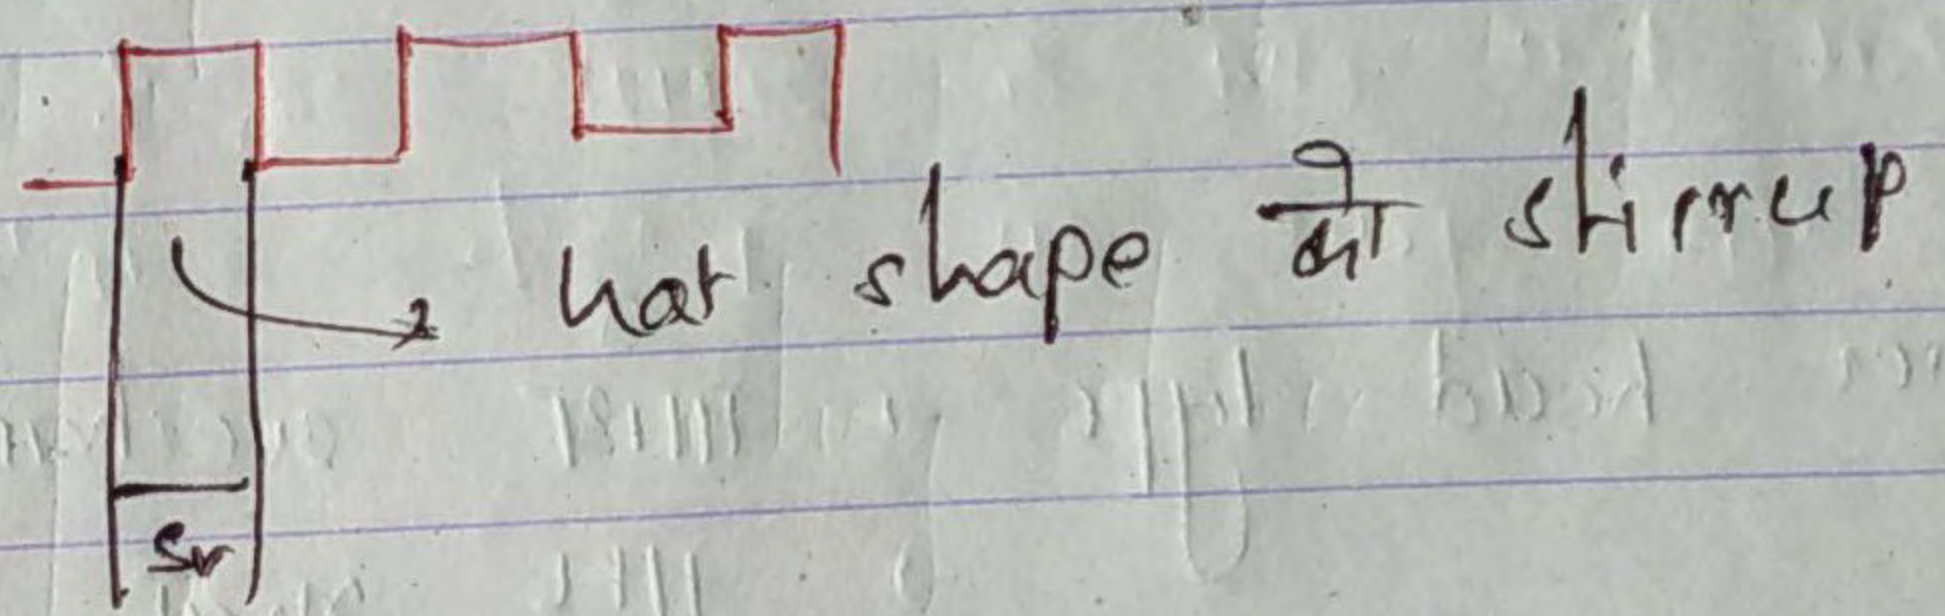 hat shape को stirrup
Sv